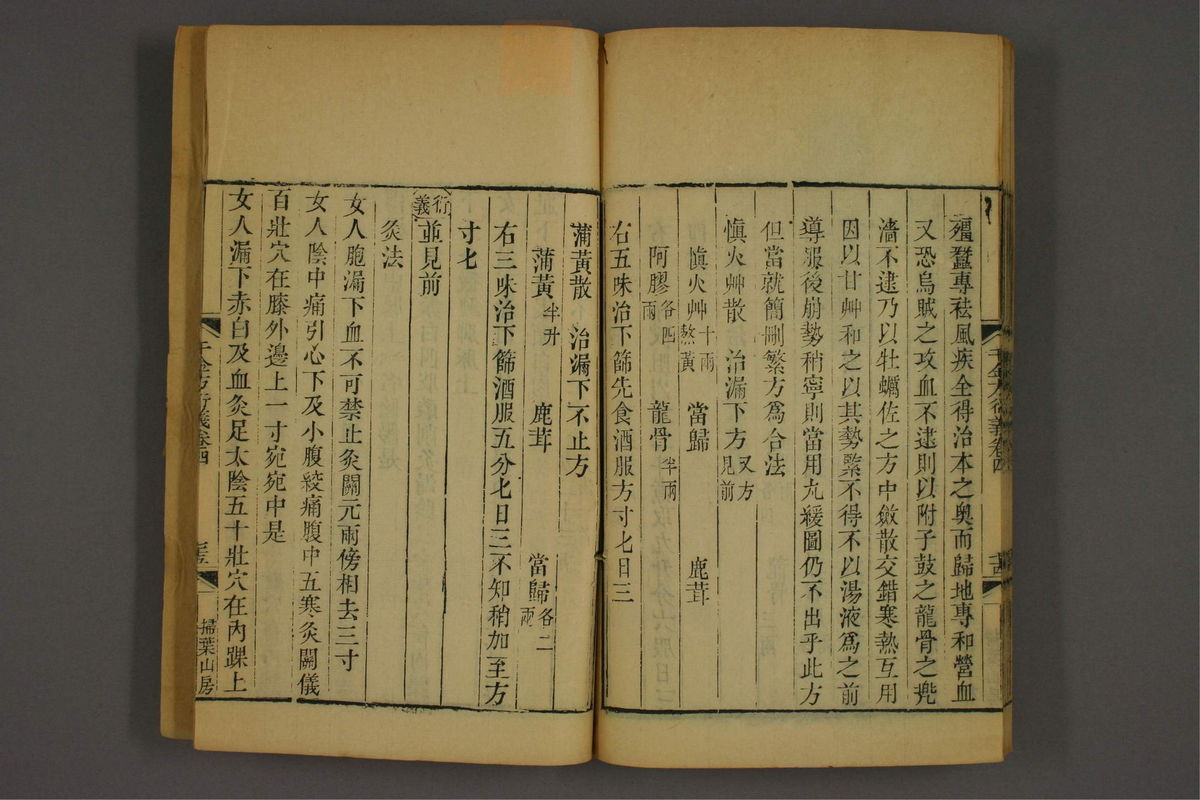 殭蠶專祛風疾全得治本之奧而歸地專和營血
又恐烏賊之攻血不逮則以附子鼓之龍骨之兠
濇不逮乃以牡蠣佐之方中斂散交錯寒熱互用
因以甘艸和之以其勢緊不得不以湯液爲之前
導服後崩勢稍寧則當用尣緩圖仍不出乎此方
但當就簡刪繁方爲合法
愼火艸散 治漏下方又方見前
愼火艸十兩熬黃 當歸 鹿茸
阿膠各四兩 龍骨半兩
右五味治下篩先食酒服方寸匕日三
蒲黃散 治漏下不止方
蒲黃半升 鹿茸 當歸各二兩
右三味治下篩酒服五分匕日三不知稍加至方
寸匕
衍義並見前
灸法
女人胞漏下血不可禁止灸關元兩傍相去三寸
女人陰中痛引心下及小腹絞痛腹中五寒灸關儀
百壯穴在膝外邊上一寸宛宛中是
女人漏下赤白及血灸足太陰五十壯穴在內踝上
千金方衍義卷四
掃葉山房